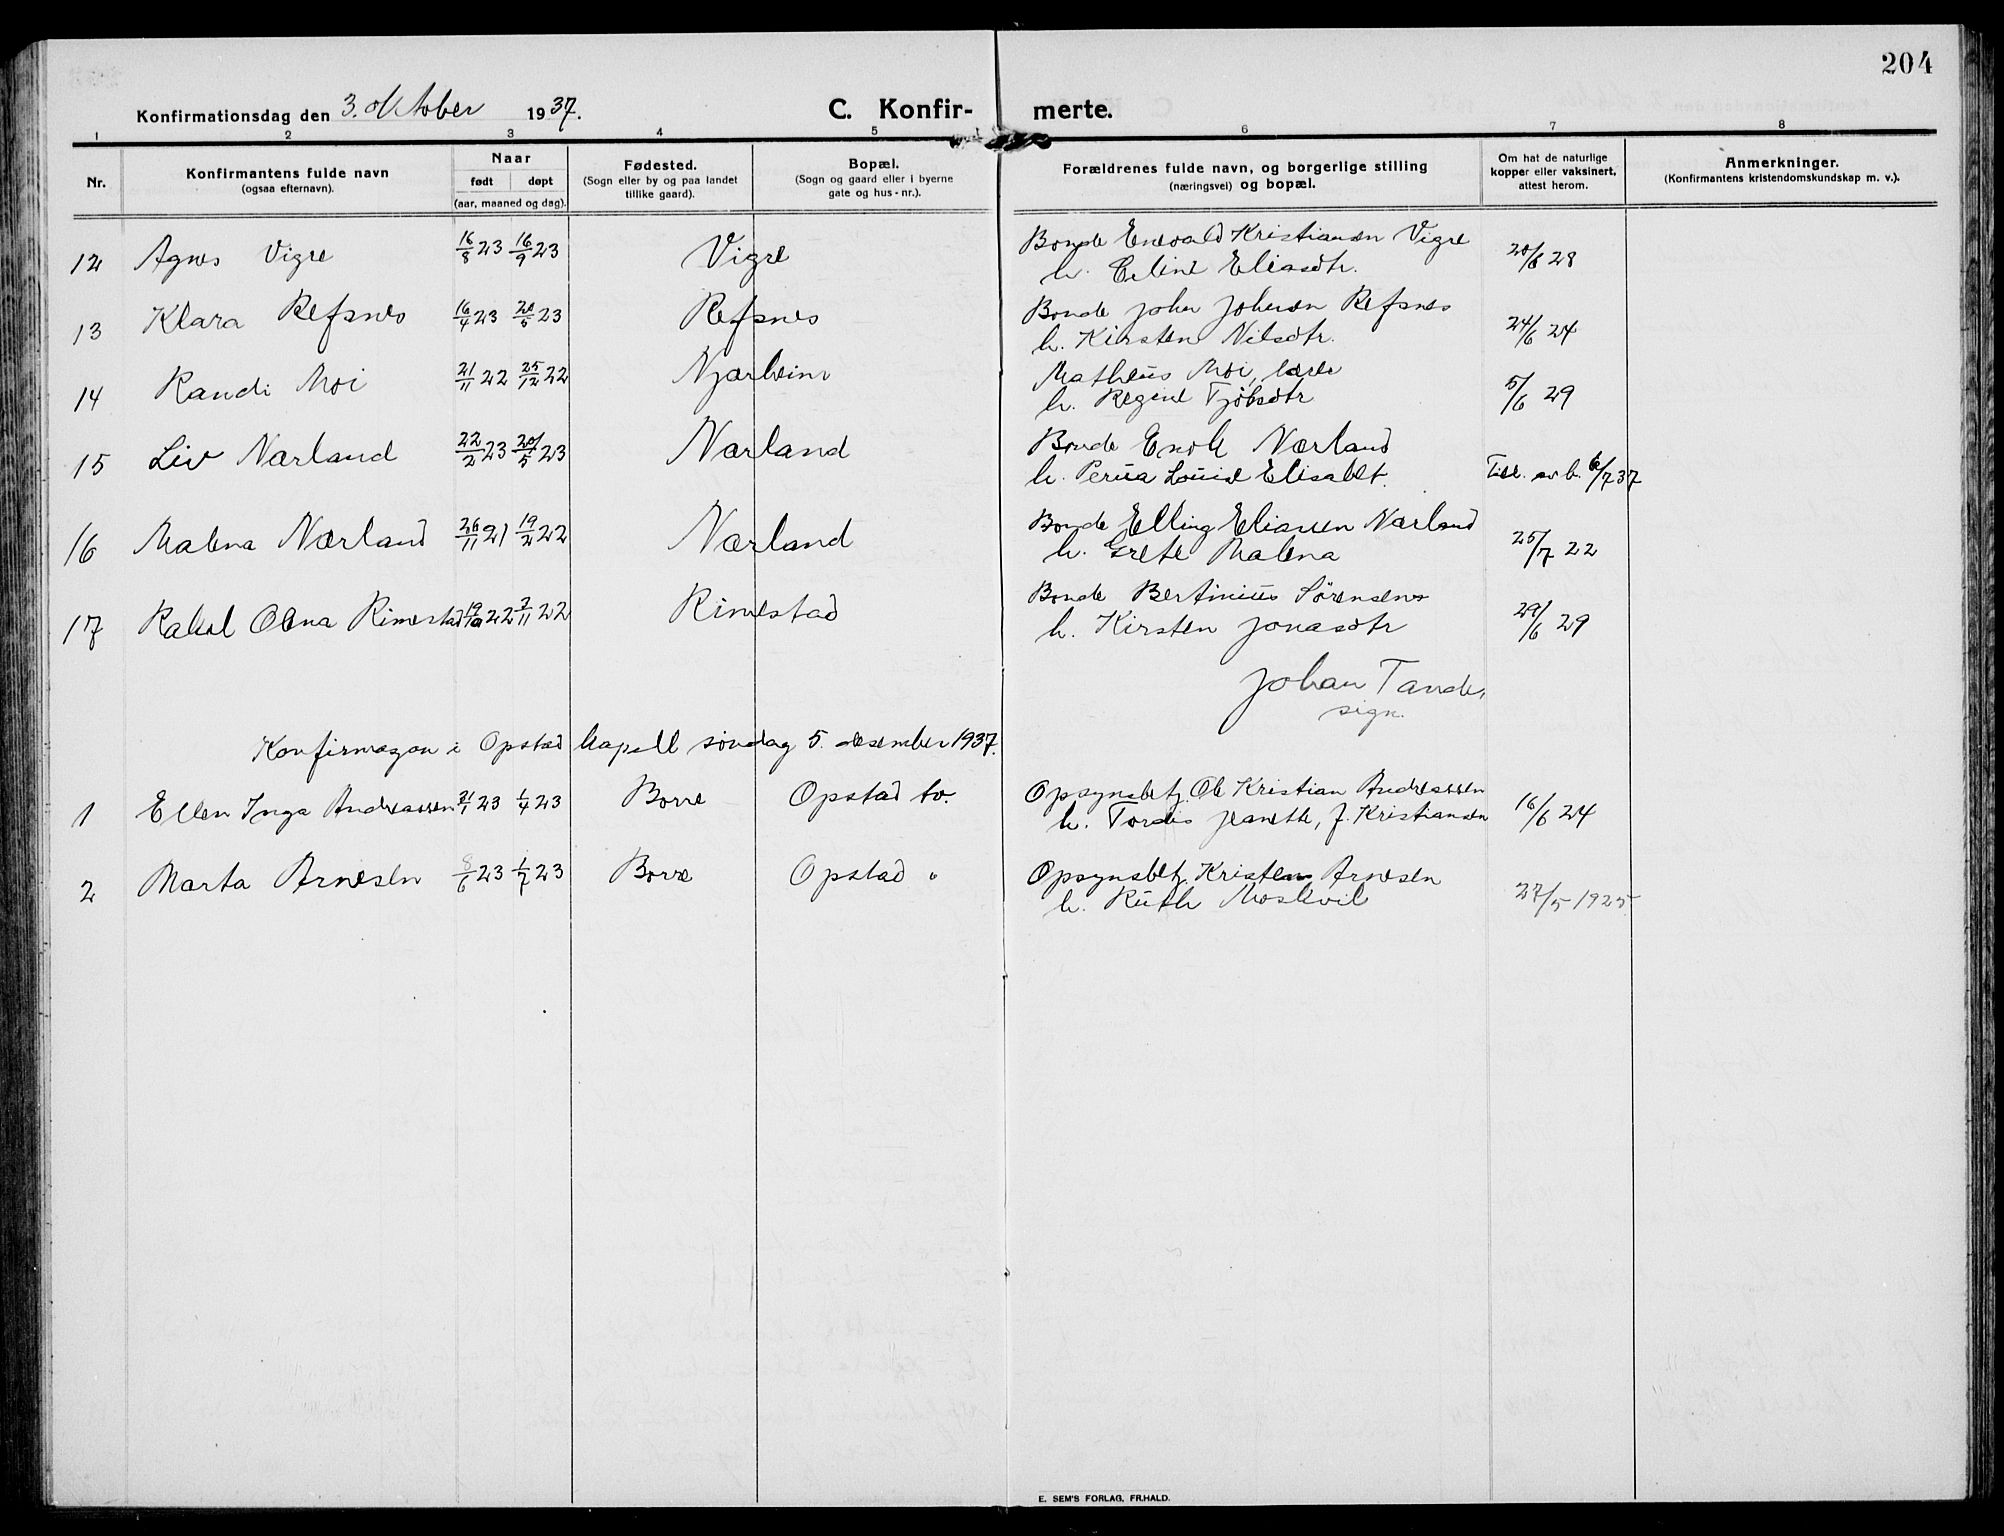 204
Konfirmationsdag den 3. oktober 1937. C. Konfir- merte.
1 2 3 4 5 6 7 8
Nr. Konfirmantens fulde navn (ogsaa efternavn). Naar født døpt (aar, maaned og dag). Fødested. (Sogn eller by og paa landet tillike gaard). Bopæl. (Sogn og gaard eller i byerne gate og hus-nr.). Forældrenes fulde navn, og borgerlige stilling (næringsvei) og bopæl. Om hat de naturlige kopper eller vaksinert, attest herom. Anmerkninger. (Konfirmantens kristendomskundskap m. v.).
12 Agnes Vigre 16/8 23 16/9 23 Vigre Bonde Enevald Kristiansen Vigre 20/6 28
h. Eline Eliasdtr.
13 Klara Refsnes 16/4 23 20/5 23 Refsnes Bonde John Johnsen Refsnes 24/6 24
h. Kirsten Nilsdtr.
14 Randi Moi 21/11 22 25/12 22 Njærheim Matheus Moi, lærer 5/6 29
h. Regine Tjöbsdtr
15 Liv Nærland 22/2 23 20/5 23 Nærland Bonde Enok Nærland
h. Perua Louise Elisabet. 6/7 37
16 Malena Nærland 26/11 21 19/2 22 Nærland Bonde Elling Eliassen Nærland 25/7 22
h. Grete Malena
17 Rakel Olena Rimestad 19/10 22 22 Rimestad Bonde Bertinius Sörensen 29/6 29
h. Kirsten Jonasdtr
Johan Tande,
sign.
Konfirmasjon i Opstad kapell söndag 5. desember 1937.
1 Ellen Inga Andreassen 21/1 23 1/4 23 Borre Opstad tv. Opsynsbetj. Ole Kristian Andreassen 16/6 24
h. Tordis Jeanette, f. Kristiansen
2 Marta Arnesen 8/6 23 1/7 23 Borre Opstad " Opsynsbetj. Kristen Arnesen 27/5 1925.
h. Ruth Moskvil
E. SEM'S FORLAG, FR.HALD.